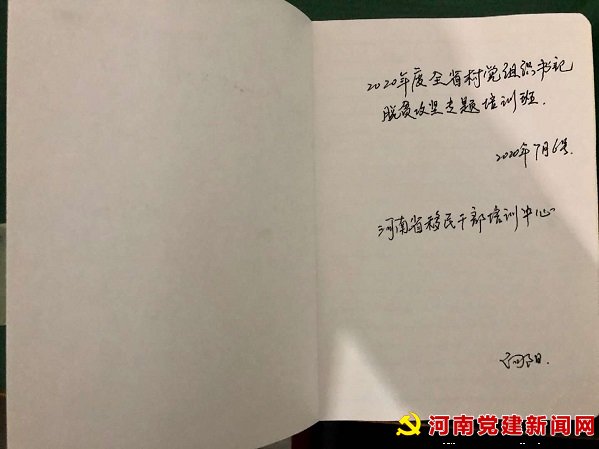 2020年度全省村党组织书记
脱贫攻坚专题培训班.
2020年7月6号.
河南省移民干部培训中心
向阳.
河南党建新闻网